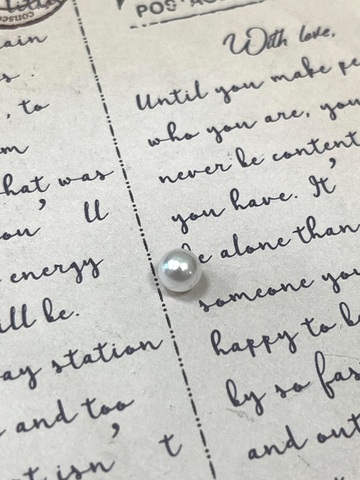 POS
With love,
Until you make pe
who you are, you
never be content
you have. It'
e alone than
someone you
happy to b
by so fas
and out
ain
s.
, to
m
hat was
ou' ll
energy
ill be.
ay station
and too
t isn' t